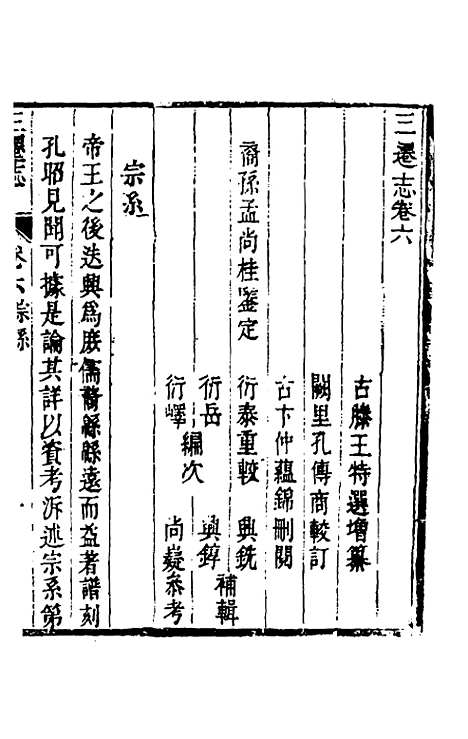 三遷志卷六
古滕王特選增纂
闕里孔傳商較訂
古卞仲蘊錦刪閱
裔孫孟尚桂鑒定
衍泰重較 興銑
衍岳 編次 興錞 補輯
衍嶧 尚嶷參考
宗系
帝王之後迭興為庶儒裔緜緜遠而益著譜刻
孔昭見聞可據是論其詳以資考泝述宗系第
三遷志 卷六宗系 一